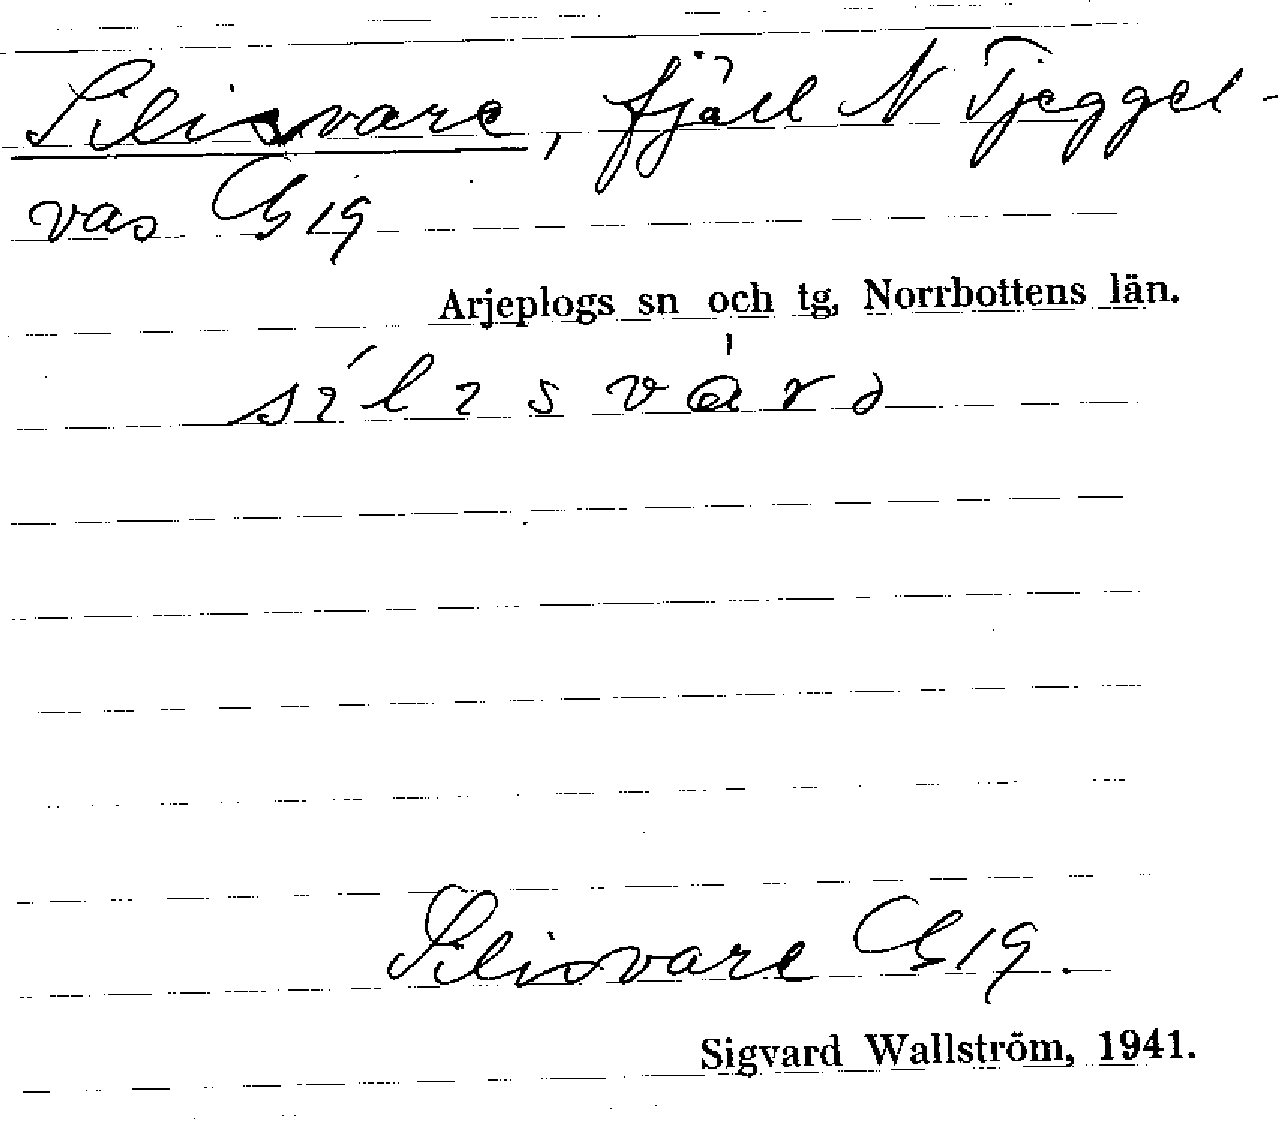 Silisvare, fjäll N Tjeggel-
vas G 19
Arjeplogs sn och tg, Norrbottens län.
Silisvare G 19.
Sigvard Wallström, 1941.